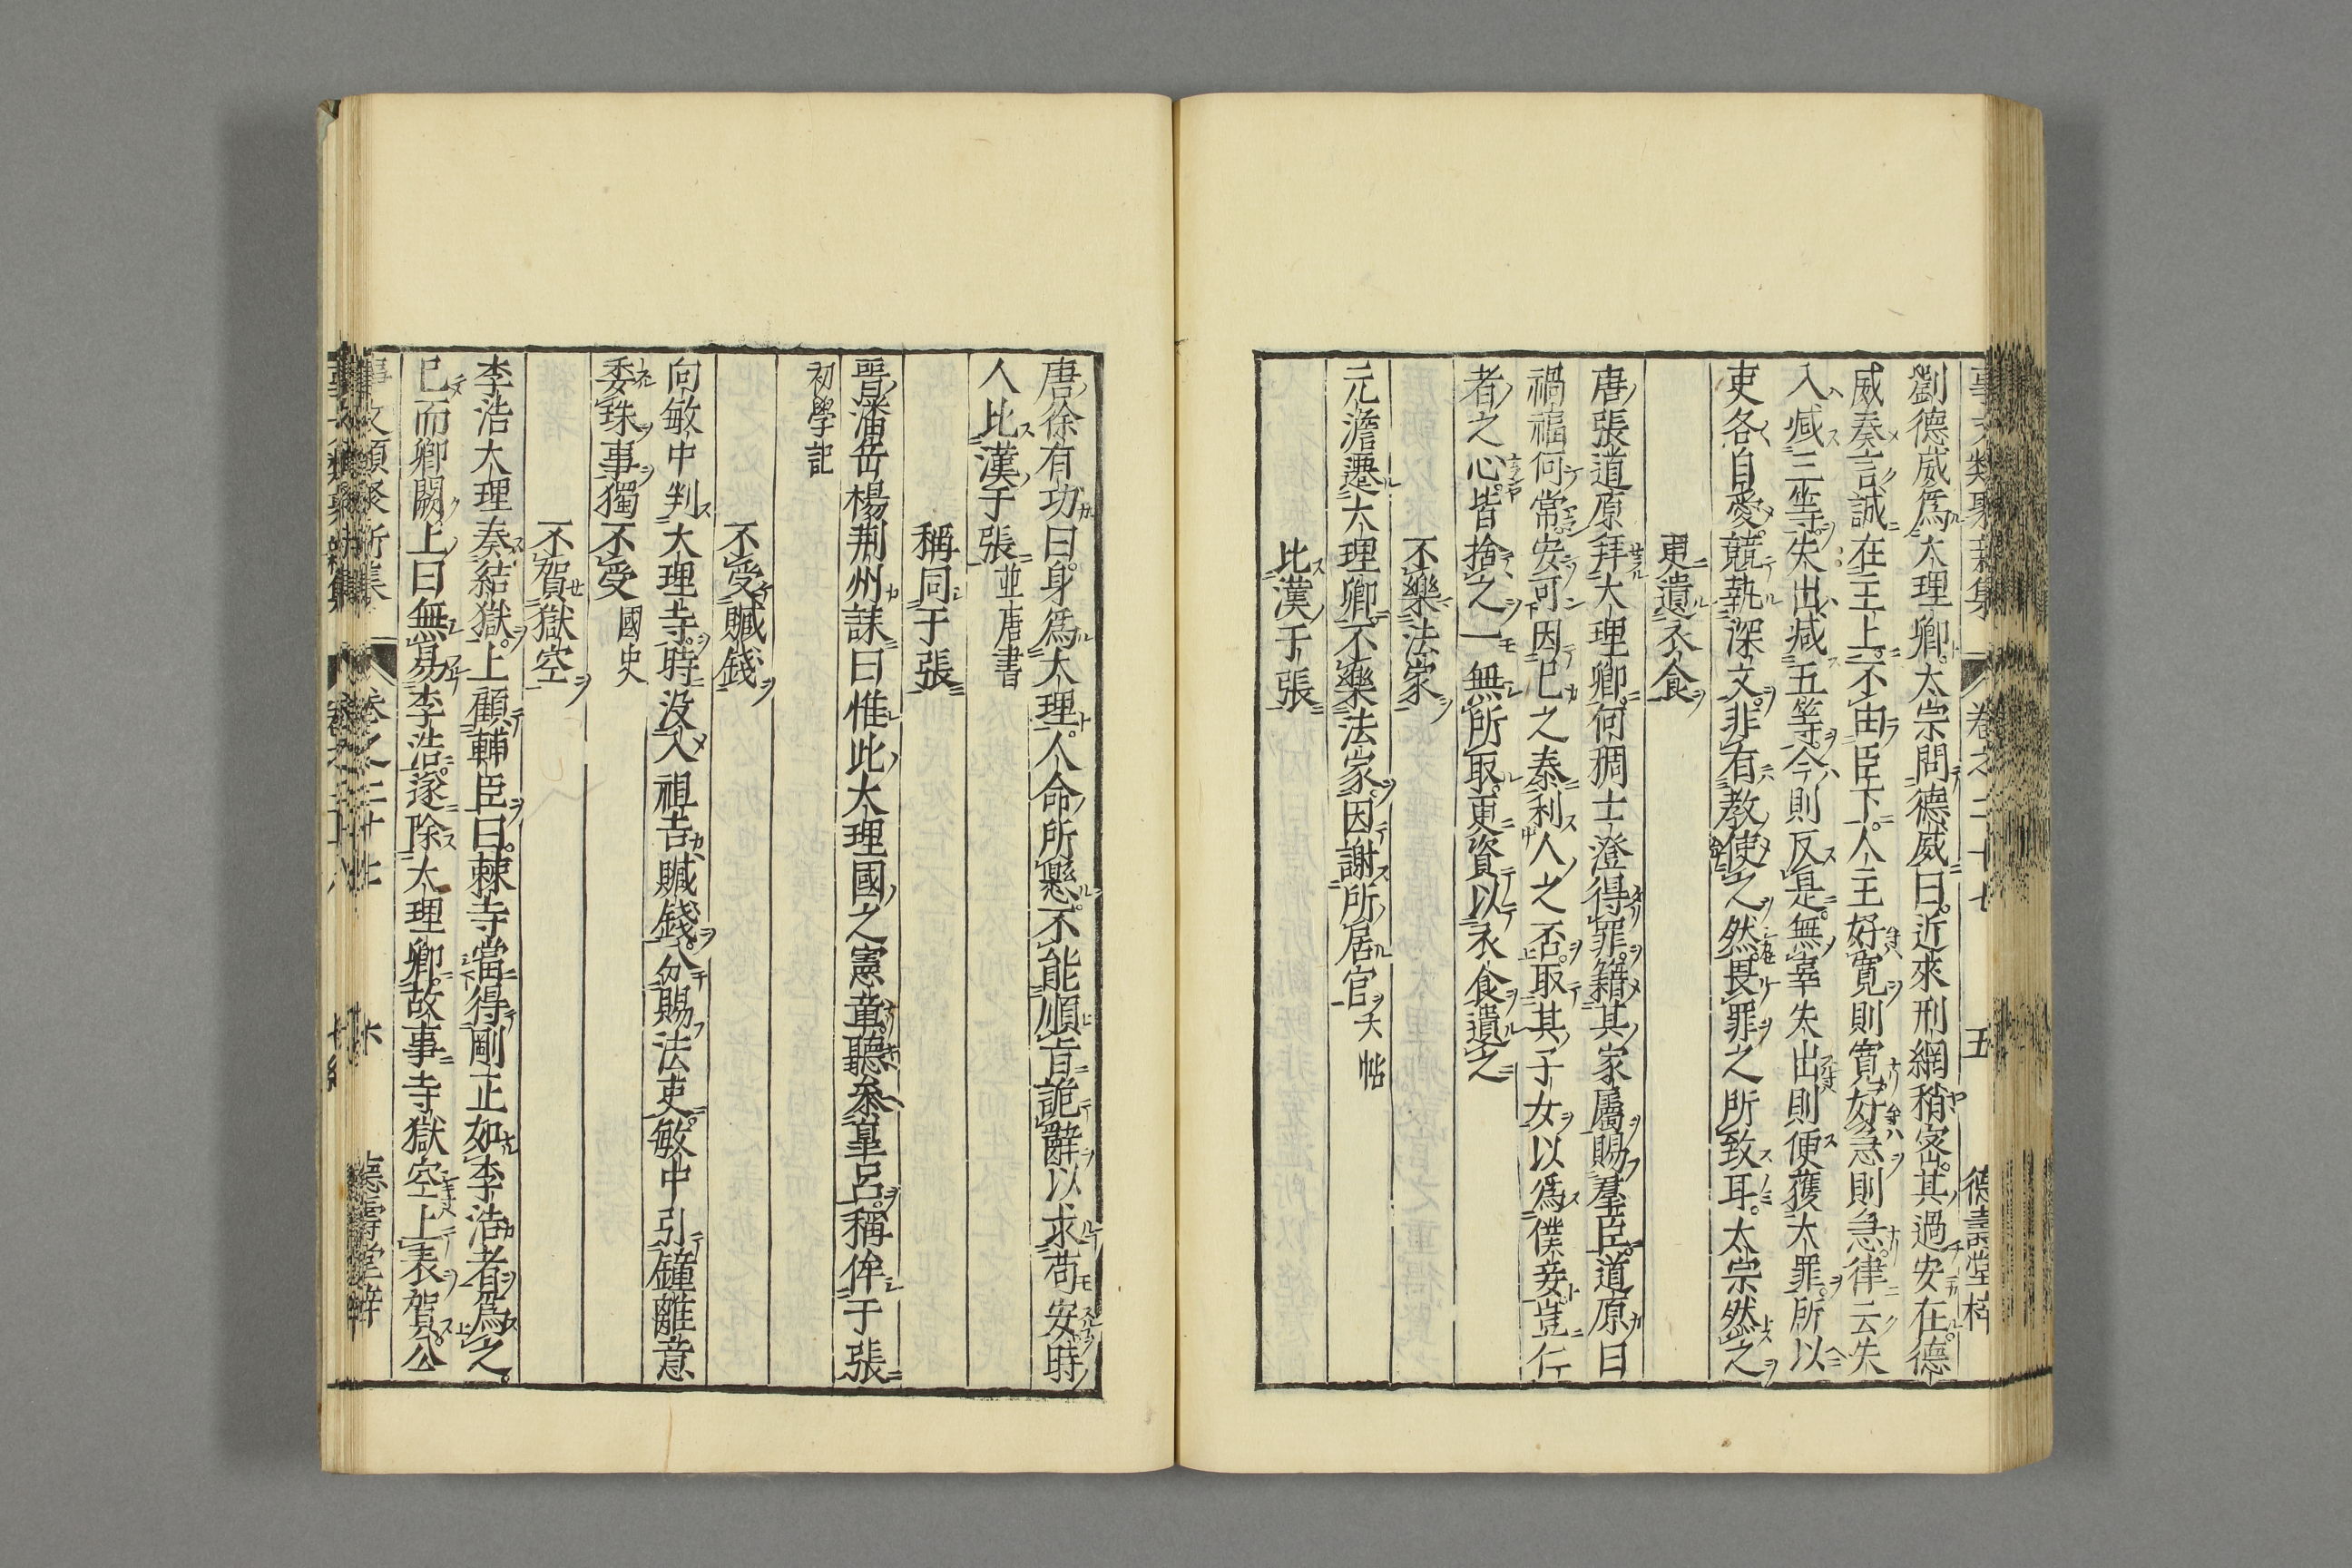 劉德威爲大理卿太宗問德威曰近來刑網稍密其過安在德
威奏言誠在主上不由臣下人主好寬則寬好急則急律云失
入减三等失出减五等今則反是無辜失出則便獲大罪所以
吏各自愛競執深文非有教使之然畏罪之所致耳太宗然之
更遺衣食
唐張道原拜大理卿何稠士澄得罪籍其家屬賜羣臣道原曰
禍福何常安可因已之泰利人之否取其子女以爲僕妾豈仁
者之心皆捨之一無所取更資以衣食遺之
不樂法家
元澹遷大理卿不樂法家因謝所居官
比漢于張
唐徐有功曰身爲大理人命所懸不能順旨詭辭以求苟安時
人比漢于張 並唐書
稱同于張
晋潘岳楊荆州誄曰惟此大理國之憲章聽參皐呂稱侔于張
初學記
不受贓錢
向敏中判大理寺時没入祖吉贓錢分賜法吏敏中引鐘離意
委珠事獨不受 國史
不賀獄空
李浩大理奏結獄上顧輔臣曰棘寺當得剛正如李浩者爲之
已而卿闕上曰無易李浩遂除大理卿故事寺獄空上表賀公